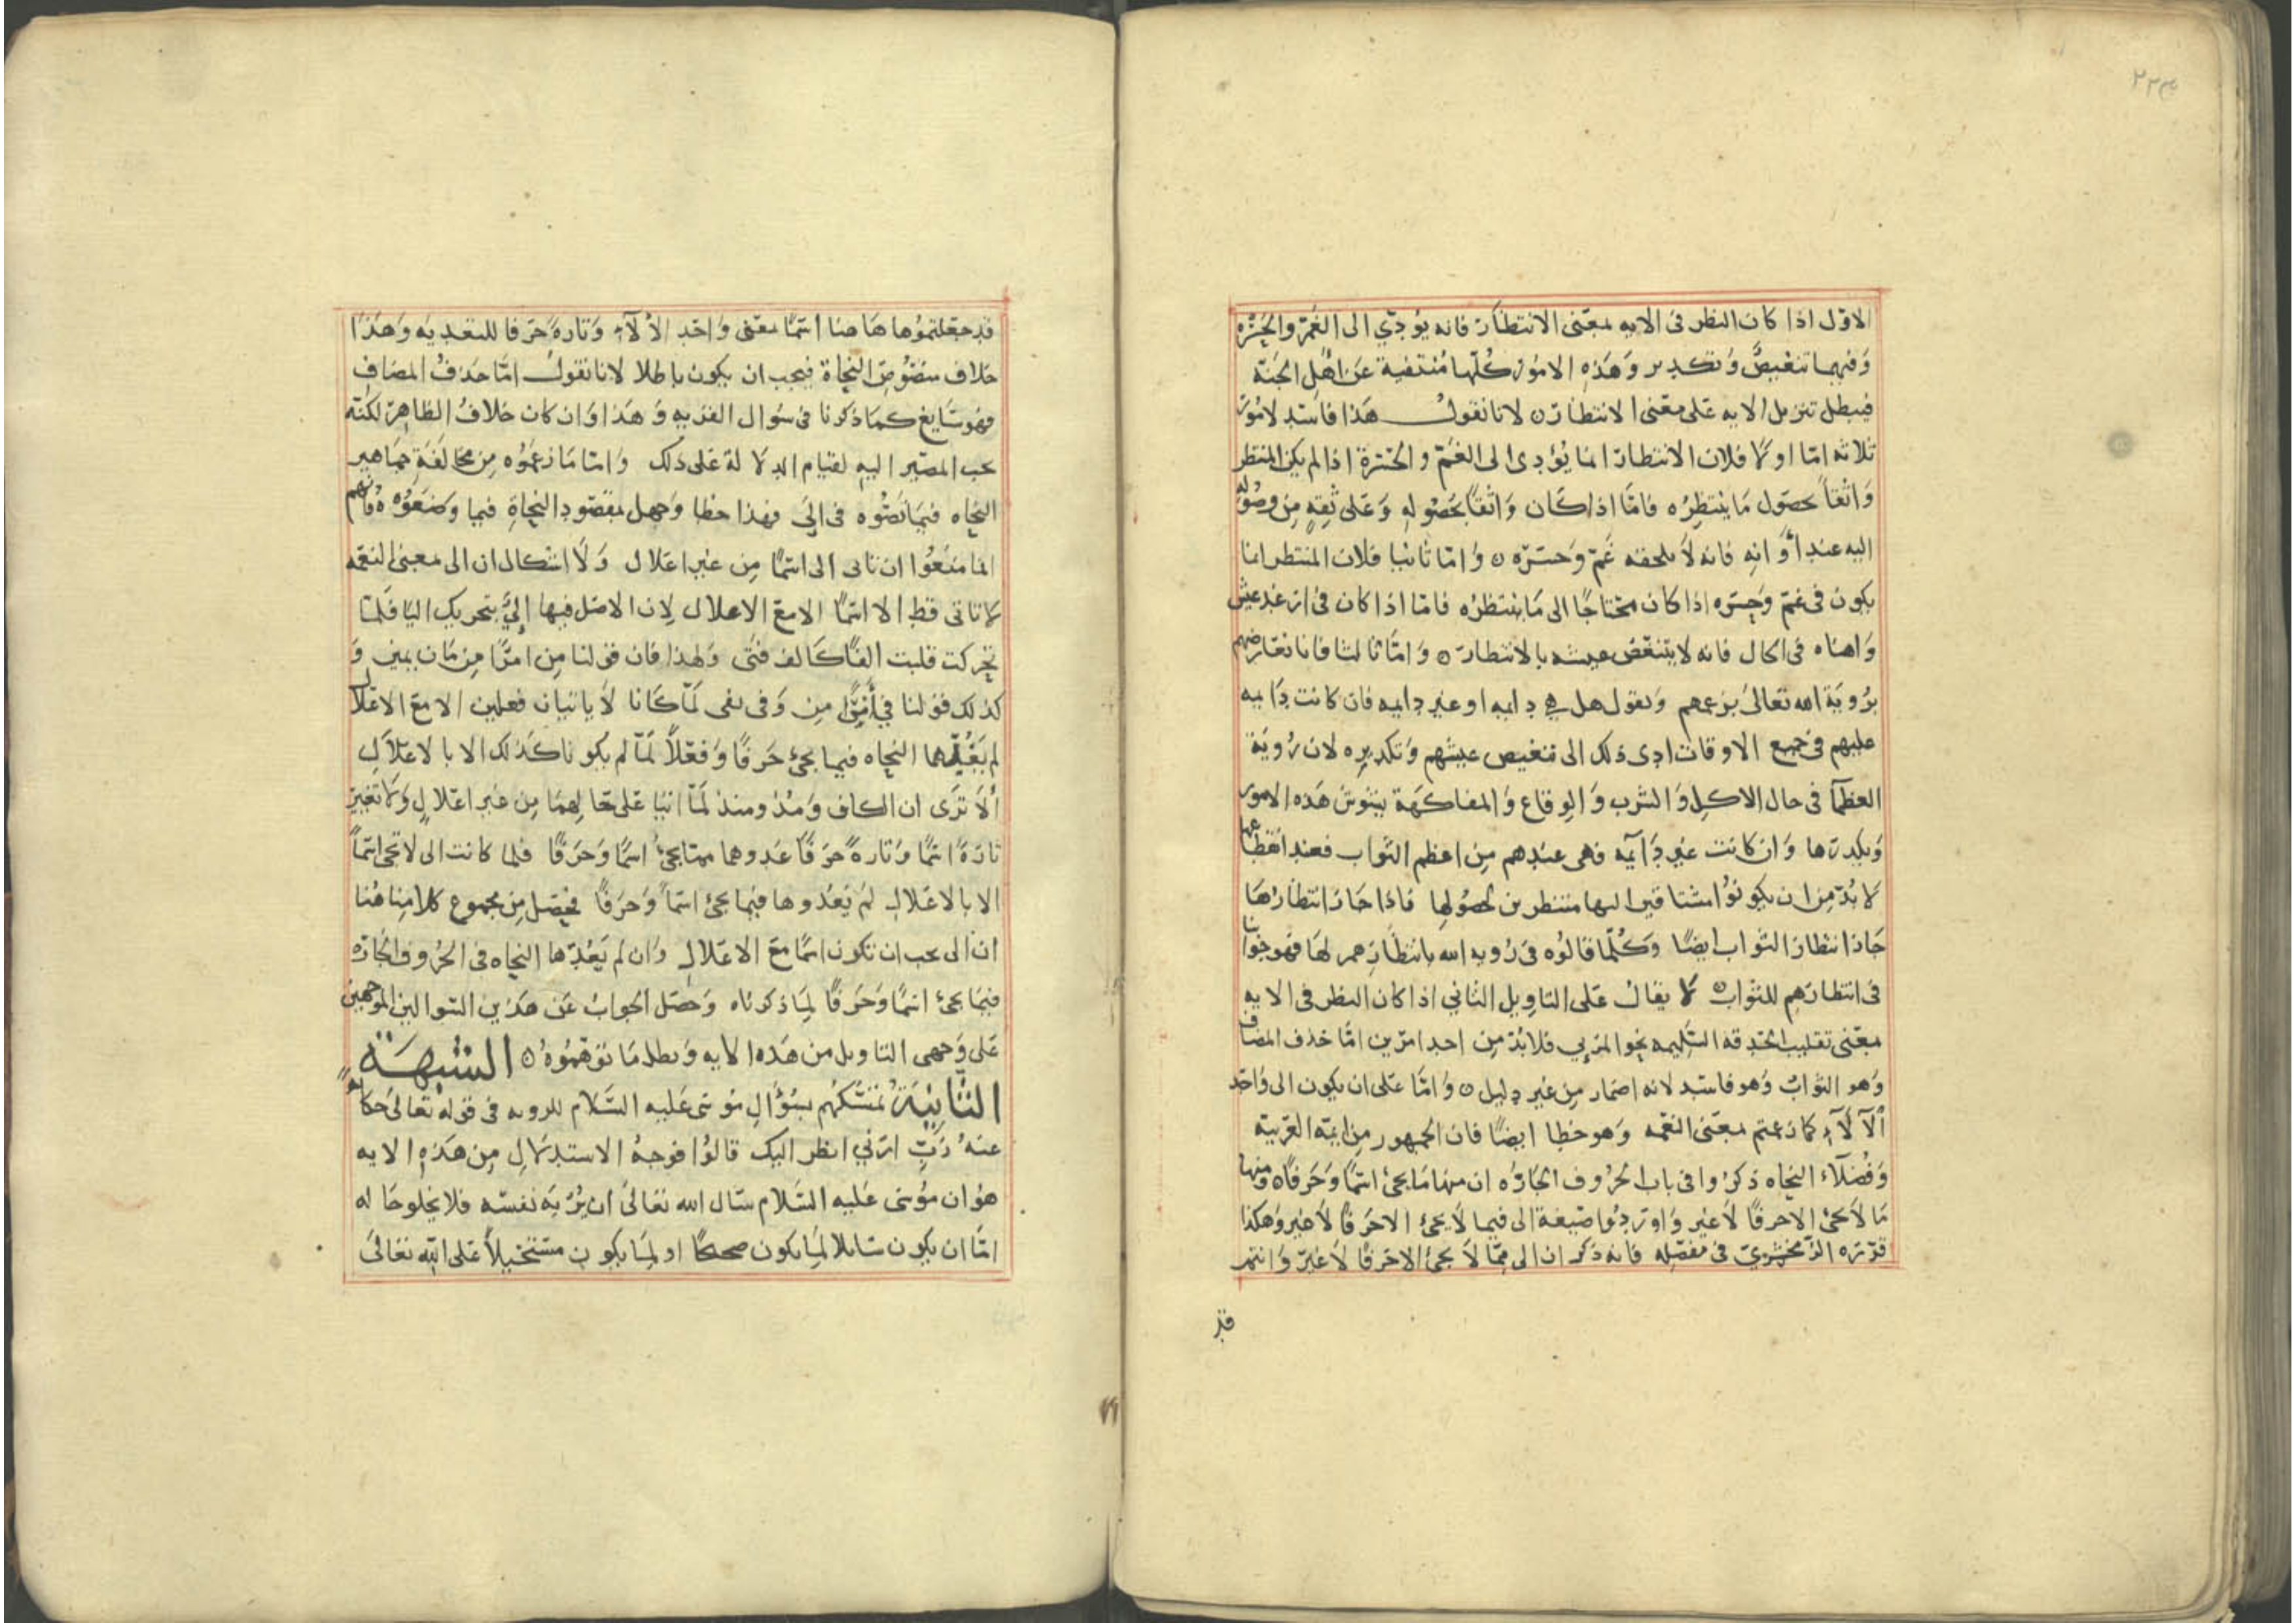 ٢٢٣
الاول اذا كان النظر فى الايه بمعنى الانتظار فانه يؤدّي الى الغم والحسْره
وَفيهما تنغيصٌ وَتكدير وَهَذه الامور كُلّها مُنتفية عَن اهْل الجنة
فيبطل تنزيل الايه عَلى معنى الانتظار ن لانا نقول هَذا فاسد لامور
ثلاثه امّا اولا فلان الانتظار انما يؤدى الى الغم والحسرة اذا لم يكن المنتظر
وَاثقاً بحصول مَا ينتظره فامّا اذا كان وَاثقاً بحصُوله وَعَلى ثقهٍ مِن وصُوله
اليه عند أوَانه فانه لاَ يلحقه غَم وَحسره ن وَامّا ثانيا فلان المنتظر انما
يكون فى غم وَحسره اذا كان محتاجًا الى مَا ينتظره فامّا اذا كان فى ارغد عيش
وَاهناه فى الحال فانه لا يتنغّص عيشه بالانتظار ن وَامّا ثالثا فانا نعارضهم
برُوية الله تعالى بزعمهم وَنقول هل هي دايمه او غير دايمه فان كانت دَايمه
عليهم فى جميع الاوقات ادى ذلك الى تنغيص عيشهم وَتكديره لان رُويَة
العظمآ فى حال الاكل وَالشرب وَالوقاع وَالمفاكهَة يشوش هَذه الامور
وَيكدرها وَان كانت غير دَايمه فهى عندهم مِن اعظم الثواب فعند انقطاعها
لاَ بُدّ مِن ان يكونوُا مشتاقين اليها منتظرين لحصُولها فاذا جَاز انتظارهَا
جَاز انتظار الثواب ايضًا وَكُلّما قالوُه فى رُويه الله بانتظارهم لهَا فهو جوابنا
فى انتظارهم للثواب ن لا يقال عَلى التاويل الثاني اذا كان النظر فى الايه
بمعنى تقليب الحدقه السَّليمه نحو المرءي فلا بُدّ مِن احد امرين امّا حذف المضاف
وَهو الثوابُ وَهو فاسد لانه اضمار مِن غير دليل ن وَامّا عَلى ان يكون الى وَاحد
الآلآءِ كما زعمتم بمعنى النعمه وَهو خطا ايضًا فان الجمهور مِن ايمة العربيَة
وَفضلآء النحاه ذكروا فى باب الحروف الجارّه ان منها مَا يجئ اسمًا وَحرفًا ومنها
مَا لاَ يجئ الا حرفًا لاَ غير وَاوردوُا صيغة الى فيما لاَ يجئ الا حَرفًا لاَ غير وهكذا
قرره الزمخشريّ فى مفصّله فانه ذكر ان الى ممّا لاَ يجئ الا حَرفًا لاَ غيرُ وَانتم
قد
قد جعَلتموُها هَاهنا اسمًا بمعنى وَاحد الألآءِ وَتارةً حَرفا للتعديه وَهَذا
خلاف منصُوص النحاة فيجب ان يكون باطلا لانا نقول امّا حذفُ المضاف
فهو سَايغ كما ذكرنا فى سُوال القريه وَهذا وَان كان خلافُ الظاهر لكنّه
يجب المصير اليه لقيام الدلالة عَلى ذلك وَامّا مَا زعمُوه مِن مخالفة جماهير
النحاه فيما نصُّوه فى الىَ فهذا خطا وَجهل بمقصُود النحاةِ فيما وَضعوُه فانهم
انما منعُوا ان تاتى الى اسمًا مِن غير اعلال وَلاَ اشكال ان الى بمعنى النعمه
لا تاتى قط الا اسمًا الا مع الاعلال لان الاصل فيها إلىٌ بتحريك اليا فلما
تحركت قلبت الفًا كالف فتى وَلهذا فان قولنا مِن امرًا مِن مَان يمين وَ
كذلك قولنا فِي أمرًا مِن وَفى يفى لمّا كانا لاَ ياتيان فعلين الا مع الاعلال
لم يَعُدّهما النحاه فيما يجئ حَرفًا وَفعْلاً لمّا لم يكونا كذلك الا بالاعلال
ألاَ ترَى ان الكاف وَمُذ ومنذ لمّا اتيا عَلى حَالهما مِن غير اعلالٍ وَلا تغيير
تارَةً اسمًا وَتارةً حرفًا عَدوهما ممّا يجئُ اسمًا وَحَرفًا فلما كانت الى لا تجئ اسماً
الا بالاعلال لم يَعُدوها فيما يجئ اسماً وَحَرفًا فحصَل مِن مجموع كلامِنا هُنا
ان الى يجب ان تكون اسمًا مع الاعْلال وَان لم يَعُدّها النحاه فى الحُروف الجَارّه
فيما يجئ اسمًا وَحَرفًا لما ذكرناه وَحصَل الجوابُ عَن هَذين السّوالين الموجهين
عَلى وَجهى التاويل من هَذه الايه وَبطل مَا توهموُه ن الشبْهَة
الثانِيَةُ تمسّكهم بسُؤال مُوسَى عَليه السَّلام للرويه فى قوله تعالى حكايةً
عنهُ رَبّ ارني انظر اليك قالوُا فوجهُ الاستدلال مِن هَذه الايه
هوُ ان موُسَى عَليه السَّلام سَال الله تعَالى ان يُرْيَه نفسَه فلا يخلو حَاله
امّا ان يكون سَايلا لما يكون صحيحًا او لمَا يكون مستحيلاً عَلى الله تعَالىَ